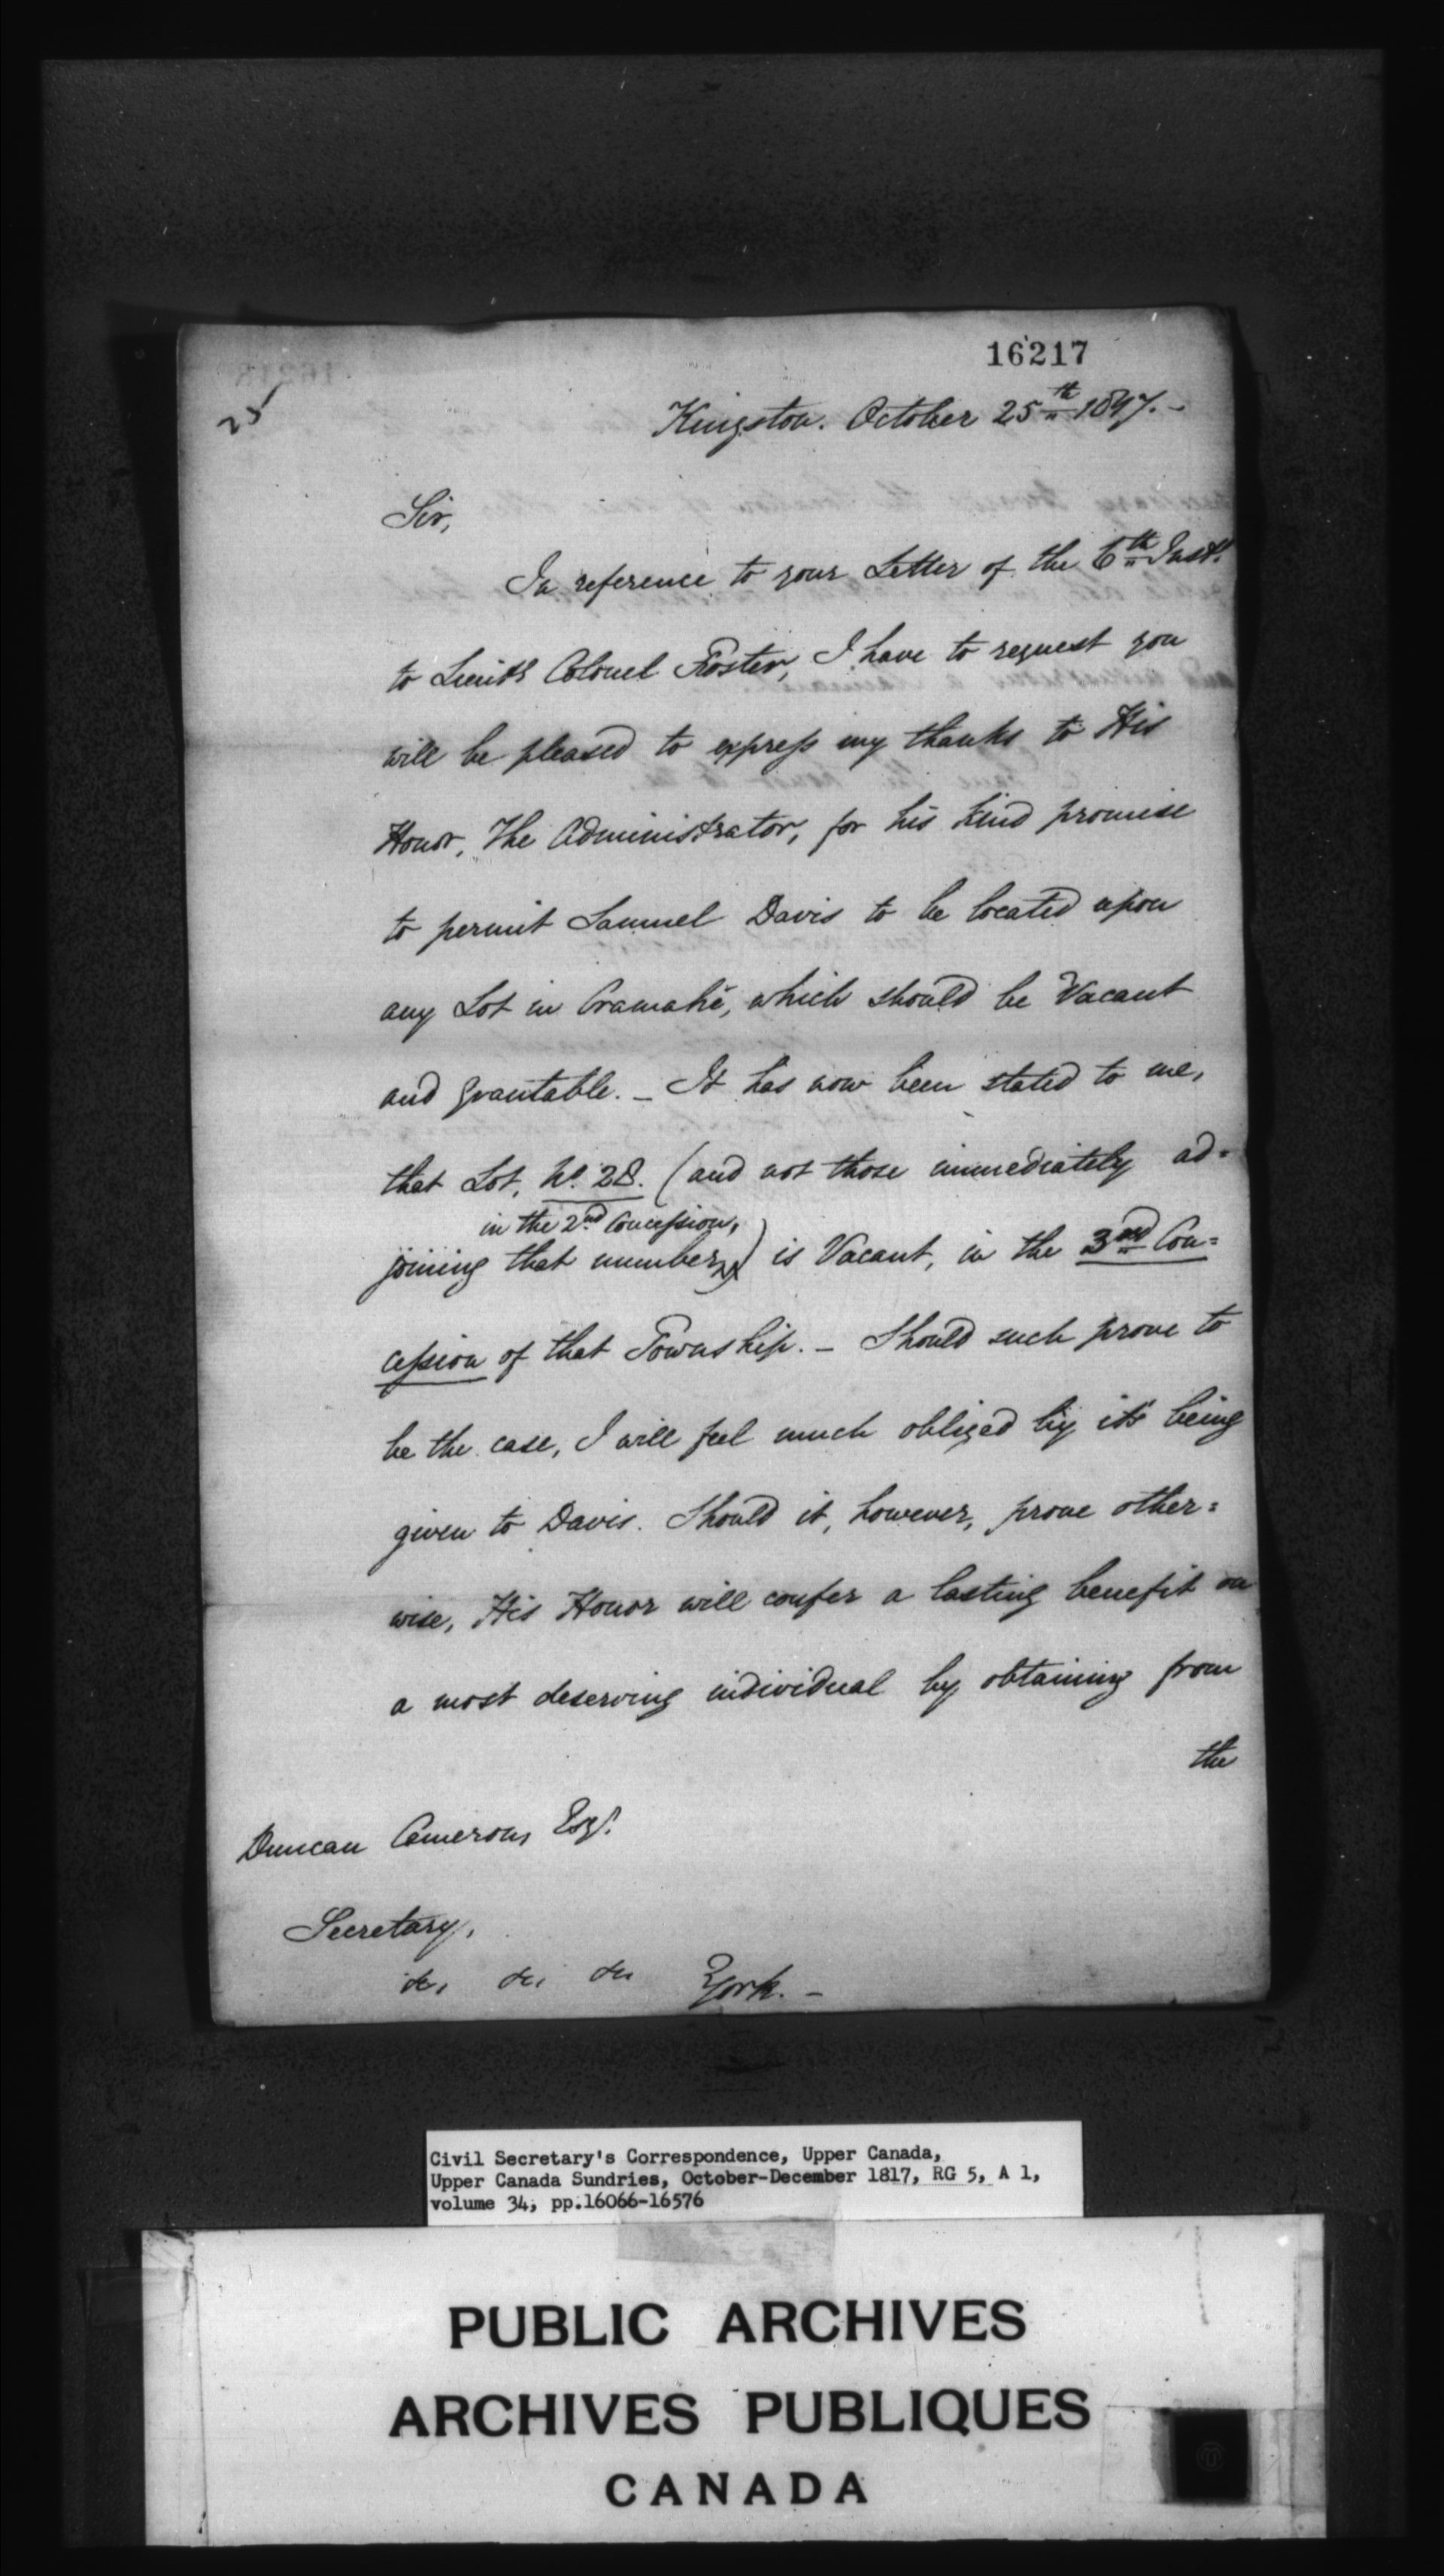 16217
25
Kingston. October 25th 1817. -
Sir,
In reference to your Letter of the 6th Inst.
to Lieut. Colonel Foster, I have to request you
will be pleased to express my thanks to His
Honor, The Administrator, for his kind promise
to permit Samuel Davis to be located upon
any Lot in Cramahé, which should be Vacant
and grantable. _ It has now been stated to me,
that Lot, No. 28. (and not those immediately ad=
in the 2nd Concession,
joining that number,) is Vacant, in the 3rd Con=
cession of that Township. - Should such prove to
be the case, I will feel much obliged by it's being
given to Davis. Should it, however, prove other=
wise, His Honor will confer a lasting benefit on
a most deserving individual by obtaining from
the
Duncan Cameron, Esqr.
Secretary,
&c, &c, &c York. -
Civil Secretary's Correspondence, Upper Canada,
Upper Canada Sundries, October-December 1817, RG 5, A 1,
volume 34, pp.16066-16576
PUBLIC ARCHIVES
ARCHIVES PUBLIQUES
CANADA